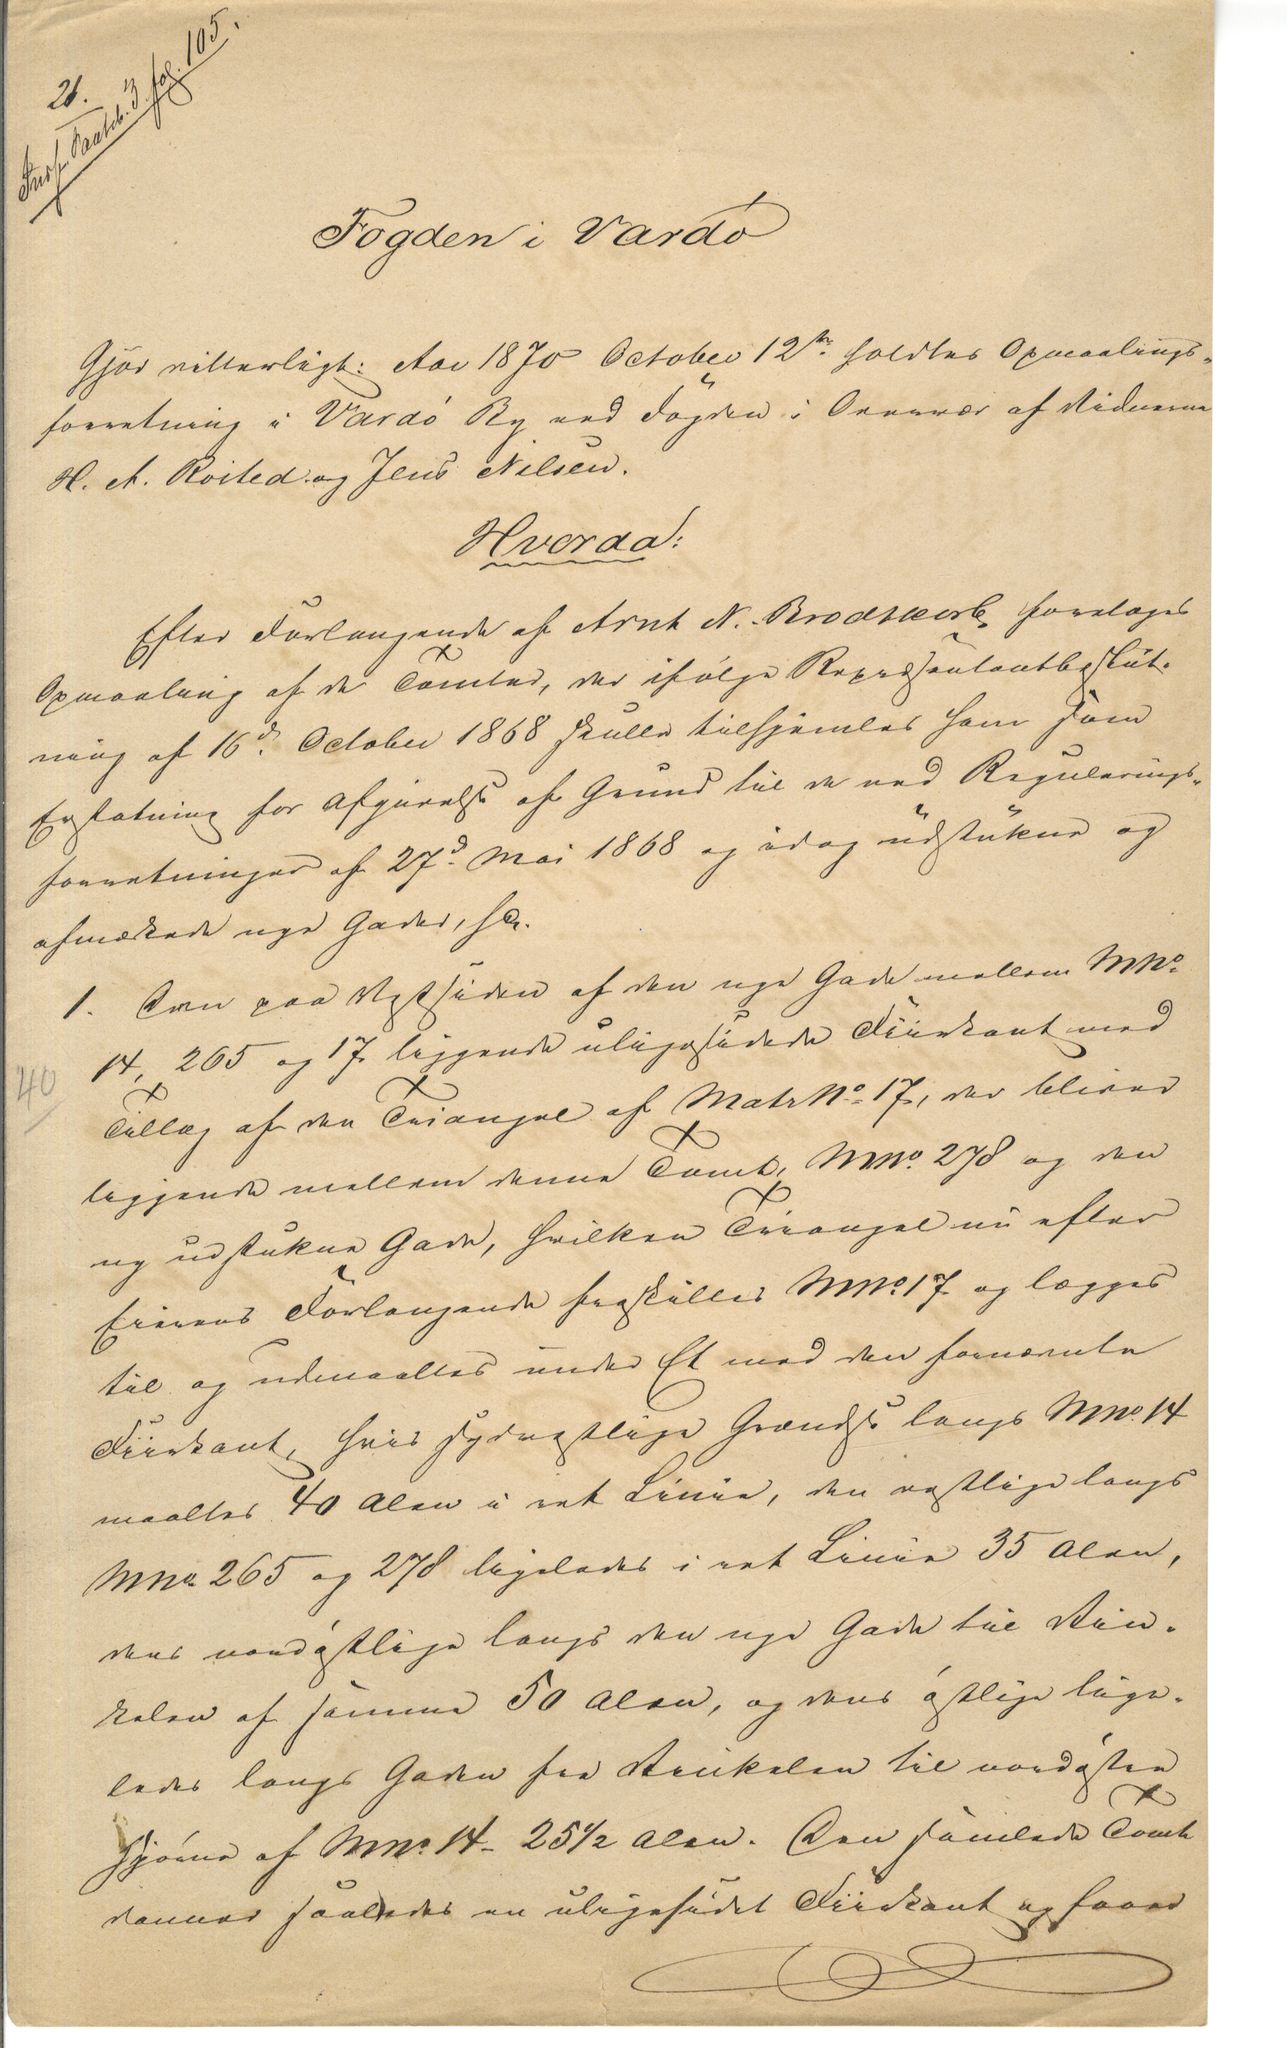 21.
Indf. Panteb. 3. fol. 105.
Fogden i Vardö
Gjör vitterligt: Aar 1870 October 12te holdtes Opmaalings-
forretning i Vardó By ved Fogden i Overvær af Vidnerne
H. A. Roited og Jens Nilsen.
Hvoraa:
Efter Forlangende af Arnt N. Brodtkorb foretoges
Opmaaling af de Tomter, der ifølge Repræsentantbeslut-
ning af 16d. October 1868 skulle tilhjemles ham som
Erstatning for Afgivelse af Grund til de ved Regulerings-
forretninger af 27d. Mai 1868 og idag udstukne og
afmærkede nye Gader, sc.
1. Den paa Vestsiden af den nye Gade mellem MNo.
14, 265 og 17 liggende uligesidede Fiirkant med
40
Tillæg af den Triangel af MatrNo. 17, der bliver
liggende mellem denne Tomt, MNo. 278 og den
ny udstukne Gade, hvilken Triangel nu efter
Eierens Forlangende fraskilles MNo. 17 og lægges
til og udmaaltes under Et med den fornævnte
Fiirkant, hvis sydvestlige Grændse langs MNo. 14
maaltes 40 Alen i ret Linie, den vestlige langs
MNo. 265 og 278 ligeledes i ret Linie 35 Alen,
dens nordóstlige langs den nye Gade til Vin-
kelen af samme 50 Alen, og dens óstlige lige-
ledes langs Gaden fra Vinkelen til nordóstre
Hjórne af MNo. 14 - 25 1/2 Alen. Den samlede Tomt
danner saaledes en uligesidet Fiirkant og faaer